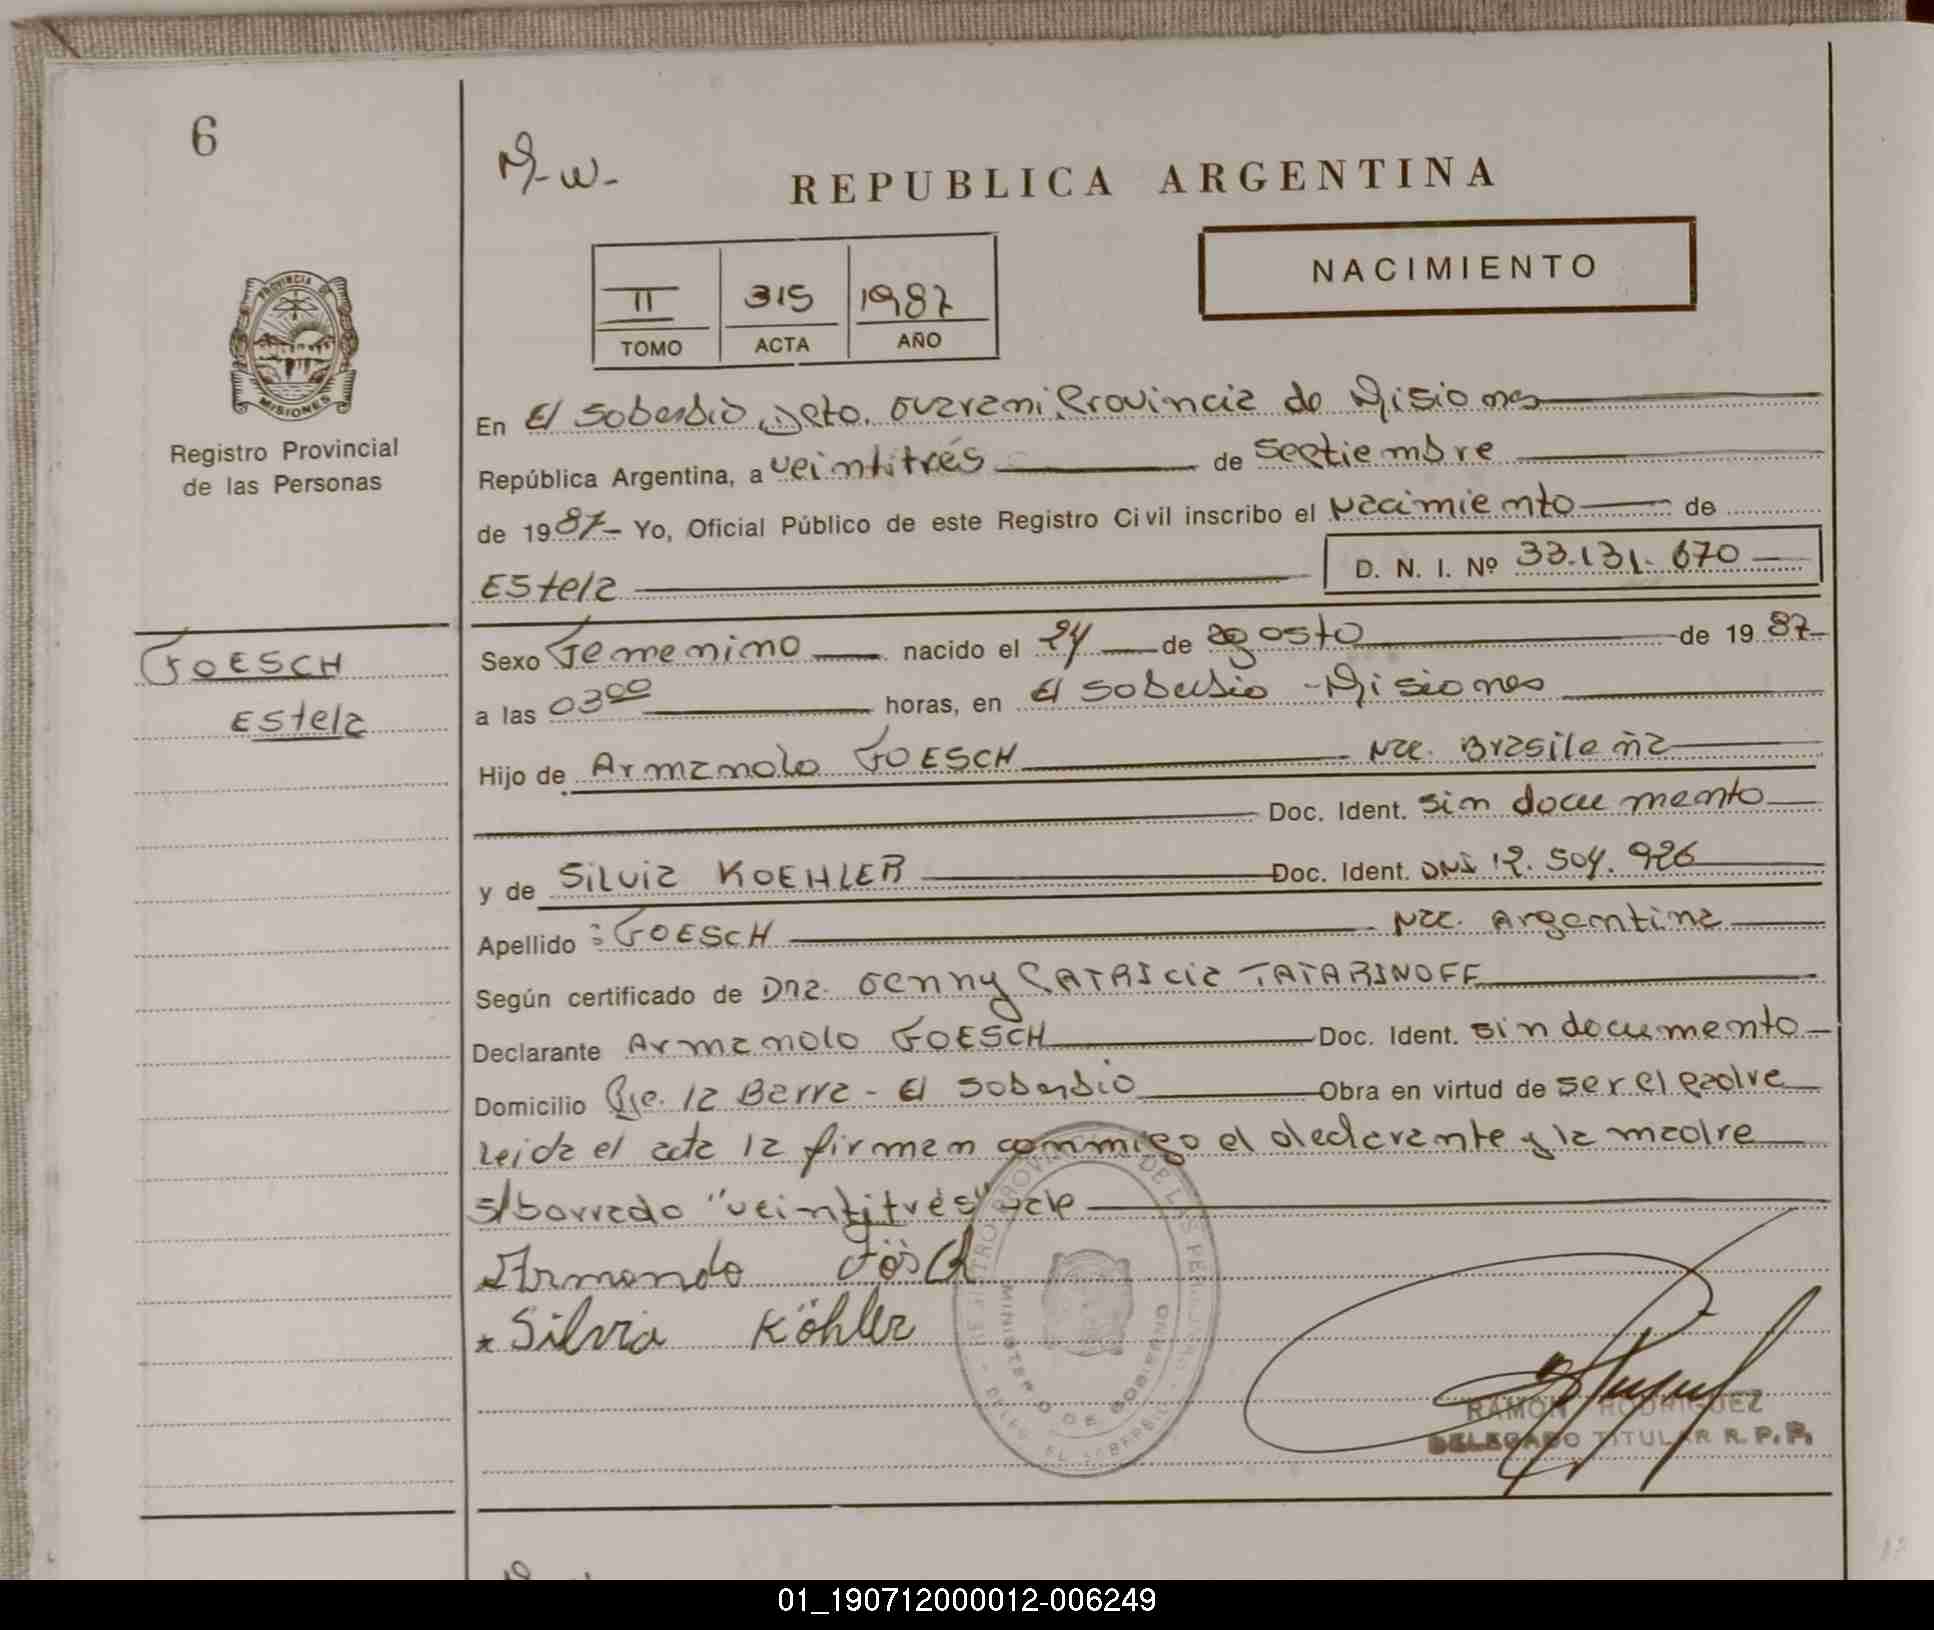 6
N-W-
REPUBLICA ARGENTINA
NACIMIENTO
II 315 1987
TOMO ACTA AÑO
PROVINCIA DE
MISIONES
Registro Provincial
de las Personas
FOESCH
Estela
En El Soberbio, Dpto. Guarani Provincia de Misiones
República Argentina, a veintitrés de Septiembre
de 1987- Yo, Oficial Público de este Registro Civil inscribo el Nacimiento de
Estela D. N. I. Nº 33.131.670
Sexo Femenino nacido el 24 de agosto de 1987-
a las 03⁰⁰ horas, en El Soberbio - Misiones
Hijo de Armando FOESCH Nac. Brasileña
Doc. Ident. sin documento
y de Silvia KOEHLER Doc. Ident. DNI 12.504.926
Apellido : FOESCH Nac. Argentina
Según certificado de Dña. Genny PATRICIA TATARINOFF
Declarante Armando FOESCH Doc. Ident. sin documento
Domicilio Pje. la Barra - El Soberbio Obra en virtud de ser el padre
Leida el acta la firman conmigo el declarante y la madre
s/borrado "veintitrés" vale
Armando Fösch
* Silvia Köhler
REGISTRO PROVINCIAL DE LAS PERSONAS
MINISTERIO DE GOBIERNO
DELEG. EL SOBERBIO
RAMON RODRIGUEZ
DELEGADO TITULAR R. P. P.
01_190712000012-006249